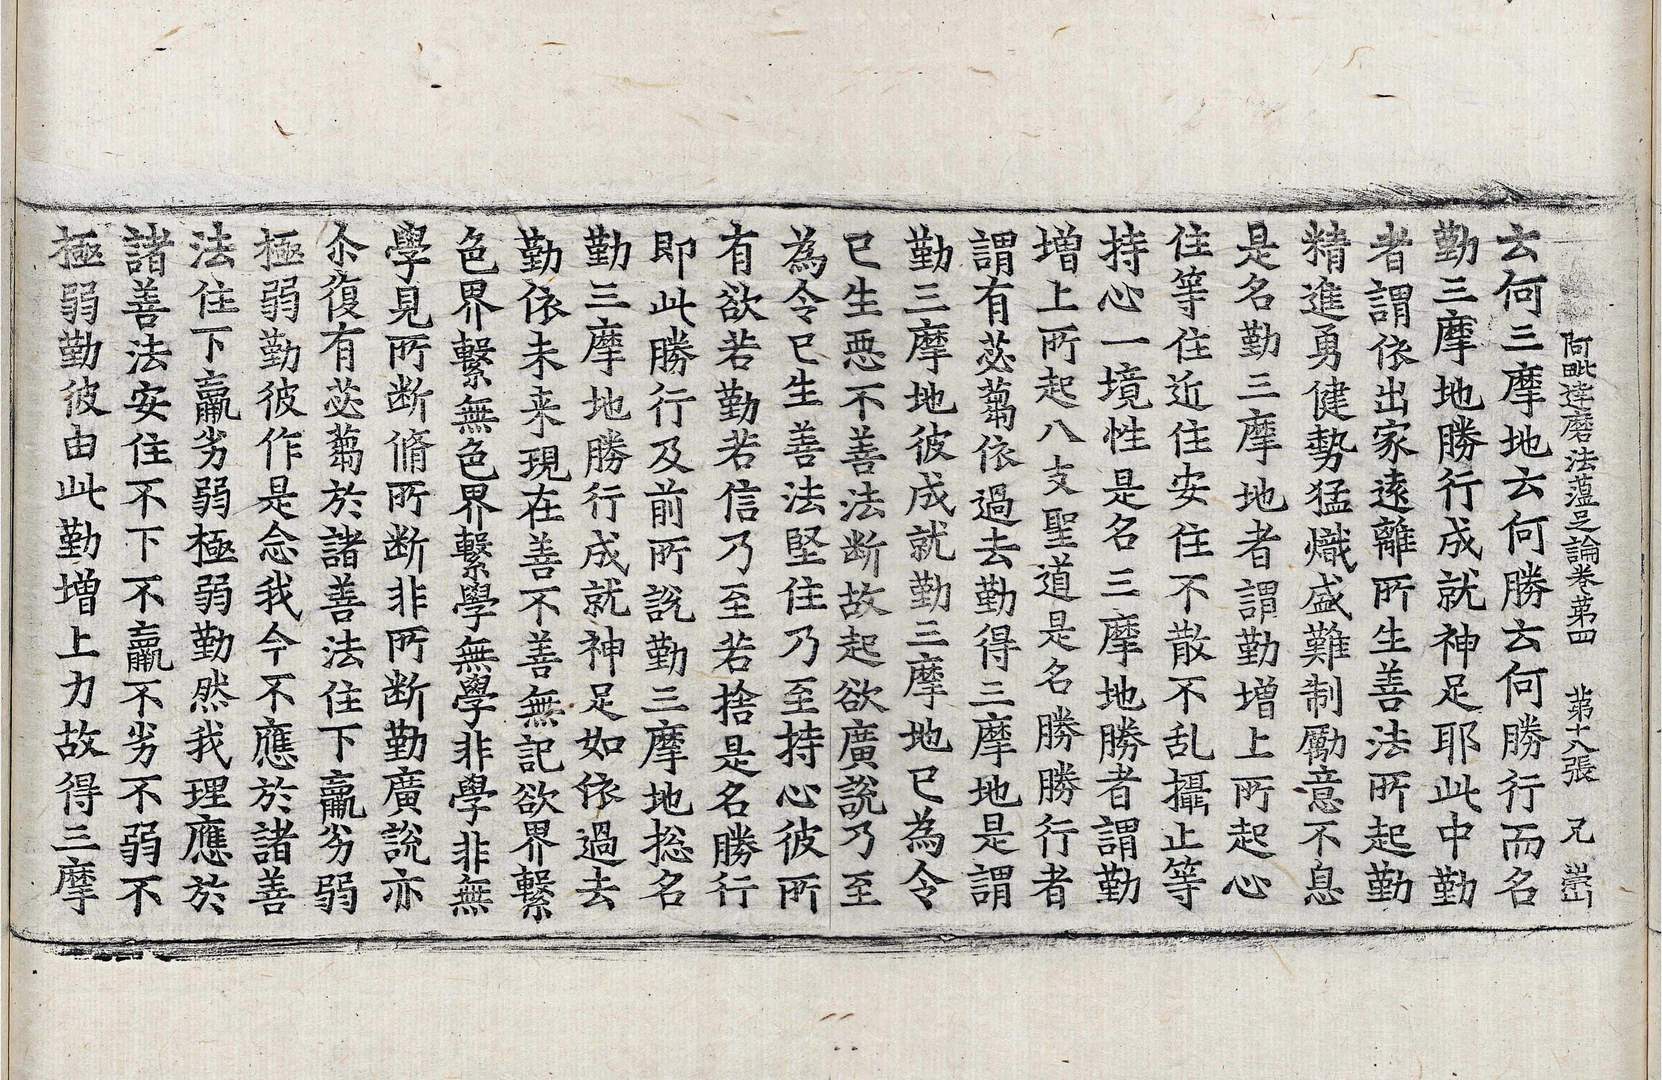 阿毗達磨法蘊足論卷第四　第十八張　兄
云何三摩地云何勝云何勝行而名
勤三摩地勝行成就神足耶此中勤
者謂依出家遠離所生善法所起勤
精進勇健勢猛熾盛難制勵意不息
是名勤三摩地者謂勤增上所起心
住等住近住安住不散不乱攝止等
持心一境性是名三摩地勝者謂勤
增上所起八支聖道是名勝勝行者
謂有苾蒭依過去勤得三摩地是謂
勤三摩地彼成就勤三摩地已為令
已生惡不善法断故起欲廣說乃至
為令已生善法堅住乃至持心彼所
有欲若勤若信乃至若捨是名勝行
即此勝行及前所說勤三摩地揔名
勤三摩地勝行成就神足如依過去
勤依未来現在善不善無記欲界繫
色界繫無色界繫學無學非學非無
學見所断脩所断非所断勤廣說亦
尒復有苾蒭於諸善法住下羸劣弱
極弱勤彼作是念我今不應於諸善
法住下羸劣弱極弱勤然我理應於
諸善法安住不下不羸不劣不弱不
極弱勤彼由此勤增上力故得三摩